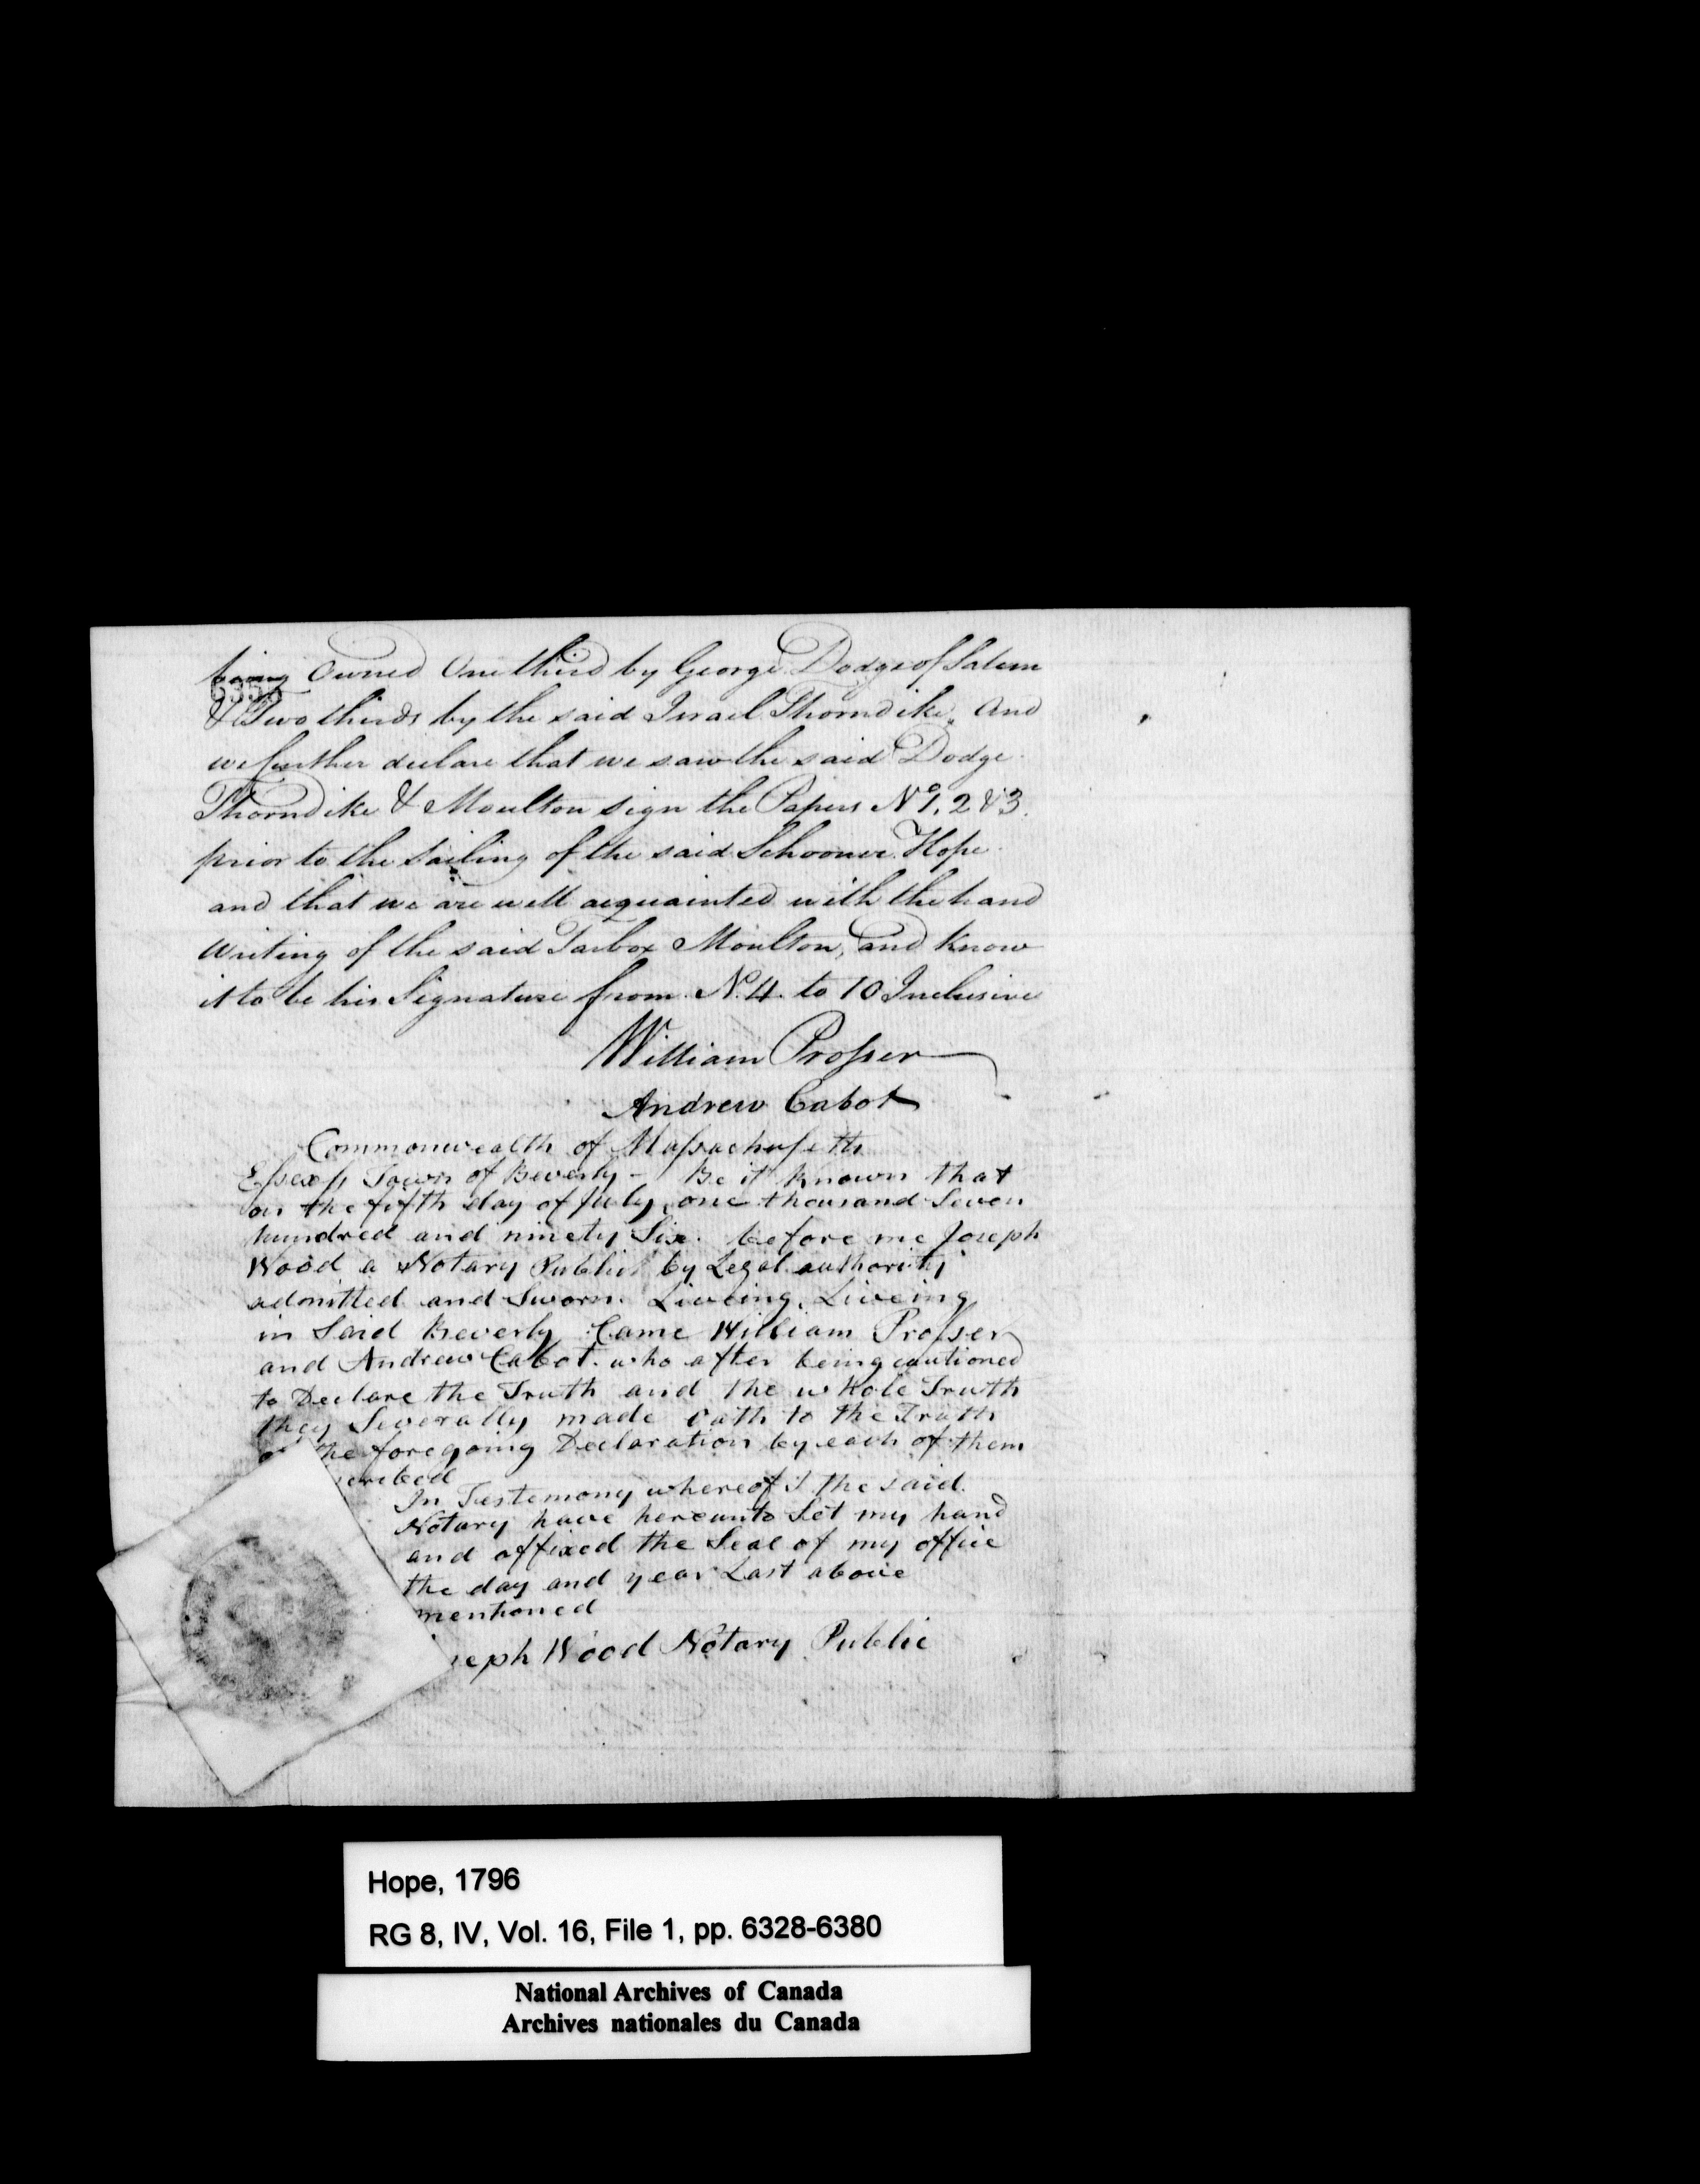 being Owned One third by George Dodge of Salem
& Two thirds by the said Israel Thorndike. And
we further declare that we saw the said Dodge
Thorndike & Moulton sign the Papers No 1, 2 & 3.
prior to the Sailing of the said Schooner Hope
and that we are well acquainted with the hand
writing of the said Tarbox Moulton, and know
it to be his Signature from No. 4. to 10 Inclusive
William Prosser
Andrew Cabot
Commonwealth of Massachusetts
Essex ss Town of Beverly - Be it Known that
on the fifth day of July, one thousand Seven
hundred and ninety Six. before me Joseph
Wood a Notary Public by Legal authority
admitted and Sworn. Liveing, Liveing
in Said Beverly Came William Prosser
and Andrew Cabot. who after being cautioned
to Declare the Truth and the whole Truth
they Severally made oath to the Truth
of the foregoing Declaration by each of them
scribed
In Testemony whereof I the said
Notary have hereunto Set my hand
and affixed the Seal of my office
the day and year Last above
mentioned
seph Wood Notary Public
Hope, 1796
RG 8, IV, Vol. 16, File 1, pp. 6328-6380
National Archives of Canada
Archives nationales du Canada